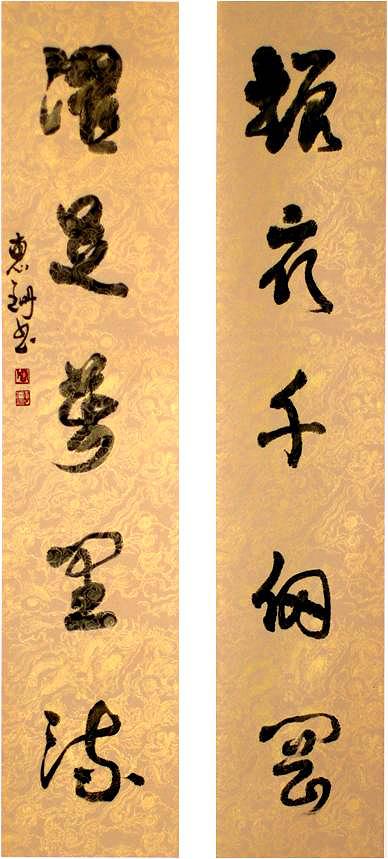 振衣千仞岡
濯足萬里流
惠珊书